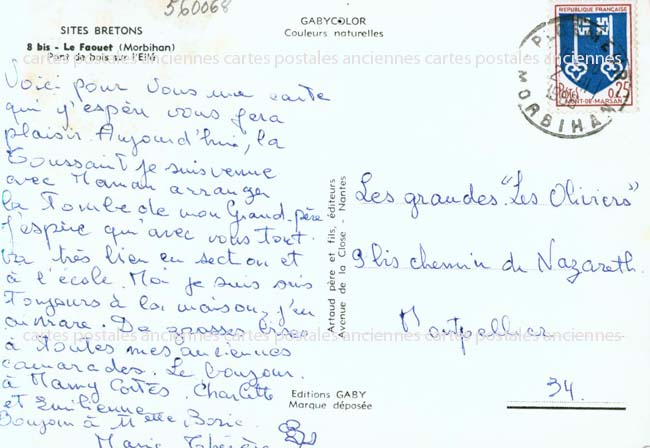 560068
SITES BRETONS
8 bis - Le Faouet (Morbihan)
Pont de bois sur l'Ellé
GABYCOLOR
Couleurs naturelles
REPUBLIQUE FRANÇAISE
0,25
MONT-DE-MARSAN
MORBIHAN
cartes postales anciennes cartes postales anciennes cartes postales anciennes
Voici pour vous une carte
qui j'espère vous fera
plaisir. Aujourd'hui, la
Toussaint je suis venue
avec Maman arranger
la Tombe de mon Grand-père
J'espère qu'avec vous tout
va très bien en section et
à l'école. Moi je suis
Toujours à la maison, j'en
ai marre. De grosses bises
à toutes mes anciennes
camarades. Le bonjour
à Mamy Cortès, Charlotte
et Emilienne
Bonjour à Melle
Marie Thérèse
Artaud père et fils, éditeurs
Avenue de la Close - Nantes
Les grandes "Les Oliviers"
9 bis chemin de Nazareth
Montpellier
cartes postales anciennes cartes postales anciennes cartes postales anciennes
34.
Editions GABY
Marque déposée